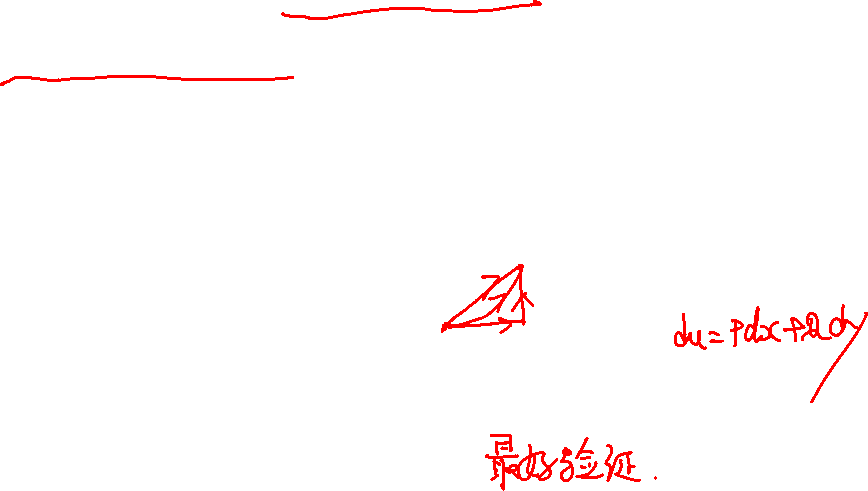 du=Pdx+Qdy
最好验证.